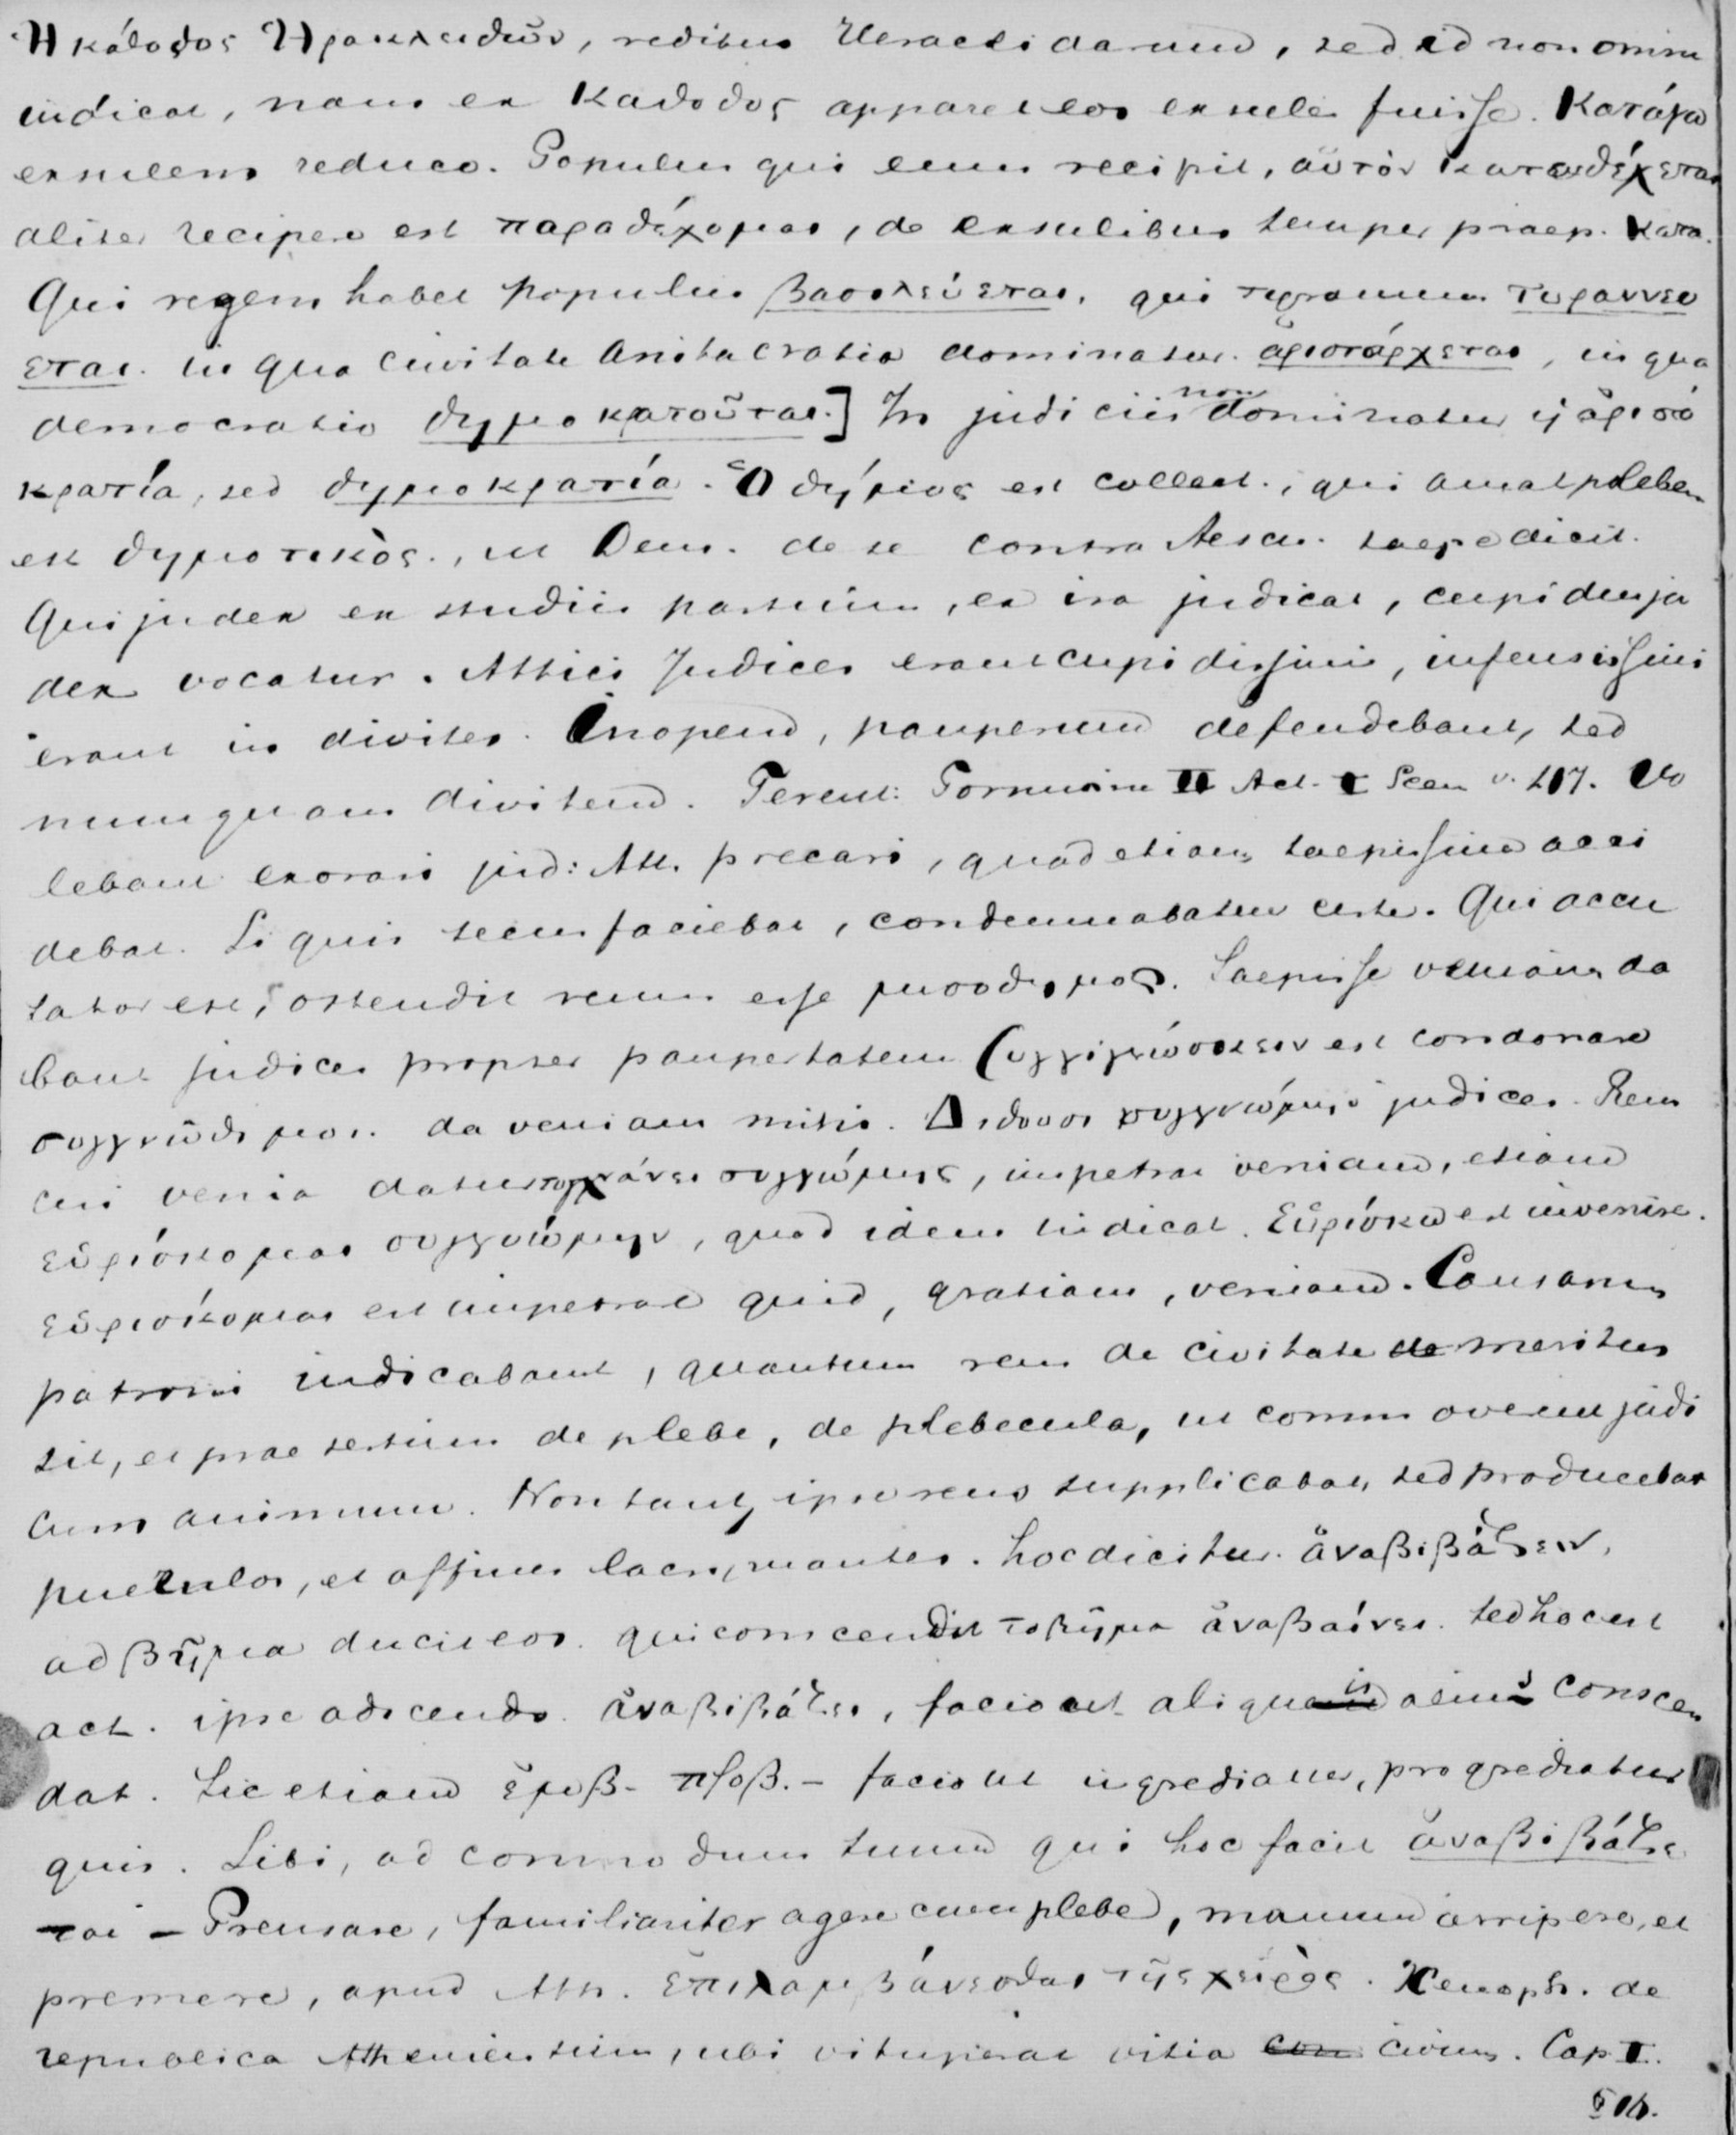 Ἡ κάθοδος Ἡρακλειδῶν, reditus Heraclidarum, sed id non omnia
indicat, nam ex Καθοδος apparet eos exules fuisse. Κατάγω
exsulem reduco. Populus qui eum recipit, αὐτὸν καταδέχεται
aliter recipere est παραδέχομαι, de exsulibus semper praep. κατα.
Qui regem habet populus βασιλεύεται, qui tyrannum τυραννευ
εται. in qua civitate aristocratia dominatur ἀριστάρχεται, in qua
democratia δημοκρατοῦται.] In judiciis non dominatur ἡ ἀριστο
κρατία, sed δημοκρατία. Ὁ δήμιος est collect., qui amat plebem
est δημοτικὸς., ut Dem. de se contra Aesch. saepe dicit.
Qui judex ex studiis partium, ex ira judicat, cupidus ju
dex vocatur. Attici Judices erant cupidissimi, infensissimi
erant in divites. Inopem, pauperem defendebant, sed
nunquam divitem. Terent: Formion II Act. I Scen v. 207. Vo
lebant exorari jud: Att. precari, quod etiam saepissime acci
debat. Si quis secus faciebat, condemnabatur certe. Qui accu
sator est, ostendit reum esse μισοδημος. Saepisse veniam da
bant judices propter paupertatem (υγγιγνώσκειν est condonare
συγγνῶθι μοι. da veniam mihi. Διδουσι συγγνώμην judices. Reus
cui venia datur τυγχάνει συγγνώμης, impetrat veniam, etiam
εὑρίσκομαι συγγνώμην, quod idem indicat. Εὑρίσκω est invenire.
εὑρισκομαι est impetrare quid, gratiam, veniam. Causam
patroni indicabant, quantum reus de civitate de meritus
sit, et praesertim de plebe, de plebecula, ut commoverent judi
cum animum. Non tant ipse reus supplicabat, sed producebat
puerulos, et affines lacrymantes. hoc dicitur ἀναβιβάζειν,
ad βῆμα ducit eos. qui conscendit το βῆμα ἀναβαίνει. sed hoc est
act. ipse adscendo. ἀναβιβάζει, facio ut aliquis asinus conscen
dat. Sic etiam ἐμβ- προβ. – facio ut ingrediatur, progrediatur
quis. Sibi, ad commodum suum qui hoc facit ἀναβιβάζε
ται – Prensare, familiariter agere cum plebe, manum arripere, et
premere, apud Ath. ἐπιλαμβάνεσθαι τῆς χειρὸς. Xenoph. de
republica Atheniensium, ubi vituperat vitia civium. Cap I.
§ 18.